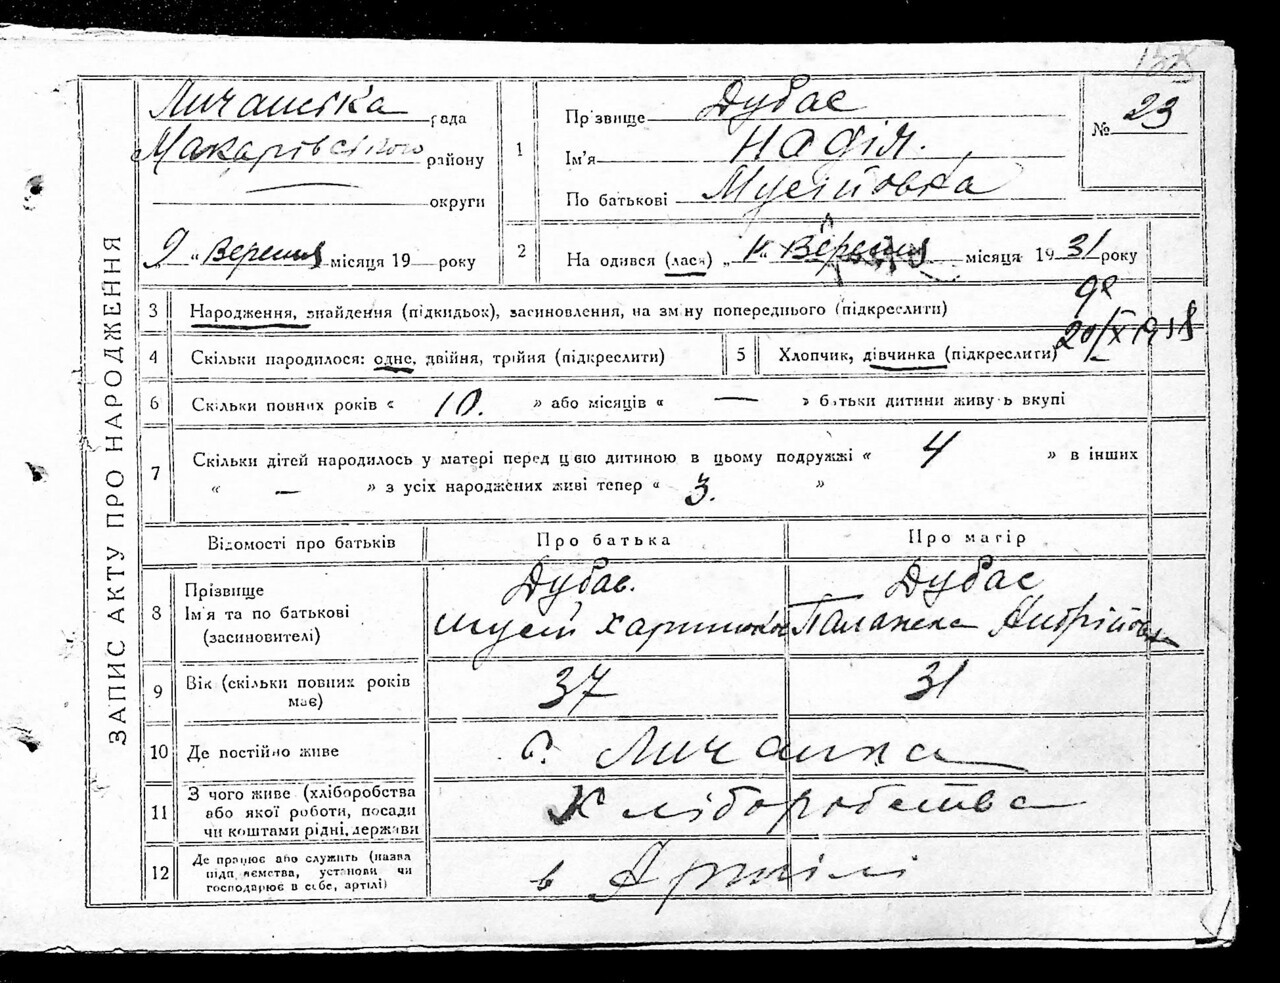 158
Личанська рада
Макарівського району
округи
„9“ Вересня місяця 19 року
1
Прізвище Дубас
Ім'я Надія.
По батькові Мусіївовна
№ 23
2
На одився (лася) „ “ Вересня місяця 1931 року
ЗАПИС АКТУ ПРО НАРОДЖЕННЯ
3 Народження, знайдення (підкидьок), засиновлення, на зміну попереднього (підкреслити)
4 Скільки народилося: одне, двійня, трійня (підкреслити)
5 Хлопчик, дівчинка (підкреслити)
20/IX 1938
6 Скільки повних років « 10. » або місяців « — » батьки дитини живуть вкупі
7 Скільки дітей народилось у матері перед цією дитиною в цьому подружжі « 4 » в інших
« — » з усіх народжених живі тепер « 3. »
Відомості про батьків Про батька Про матір
8 Прізвище
Ім'я та по батькові
(засиновителі)
Дубас.
Мусій
Дубас
Палажка Андріївна
9 Вік (скільки повних років має) 37 31
10 Де постійно живе с. Личанка
11 З чого живе (хліборобства
або якої роботи, посади
чи коштами рідні, держави
Хліборобства
12 Де працює або служить (назва
підприємства, установи чи
господарює в себе, артілі)
в Артілі